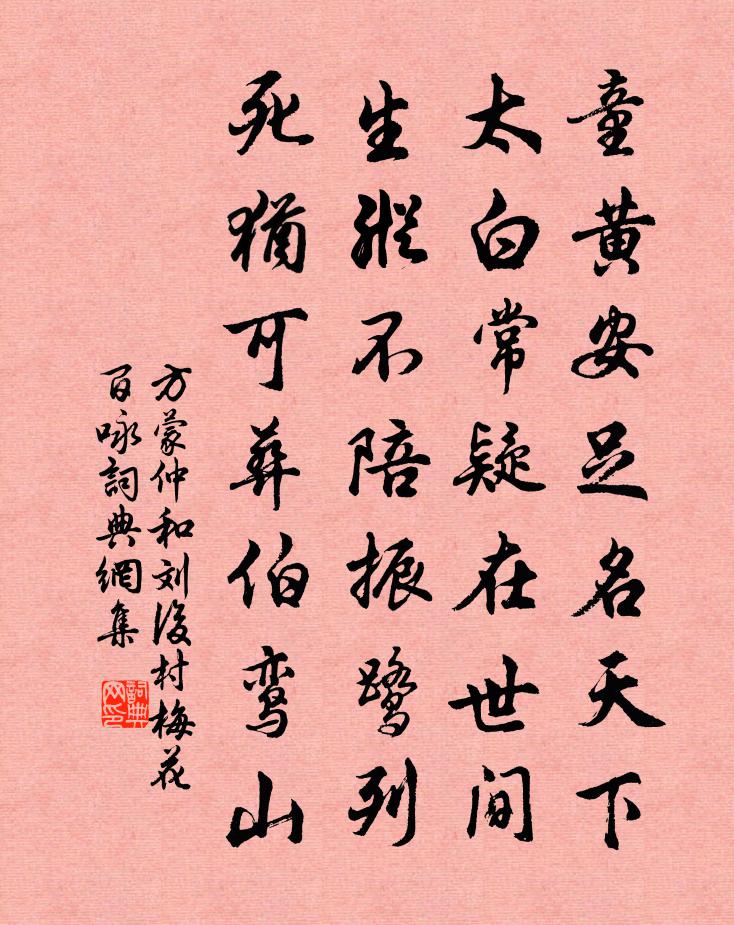 童黄安足名天下
太白常疑在世间
生縱不陪振鹭列
死猶可葬伯鸾山
方蒙仲和刘後村梅花
百咏詞典網集
詞典网印